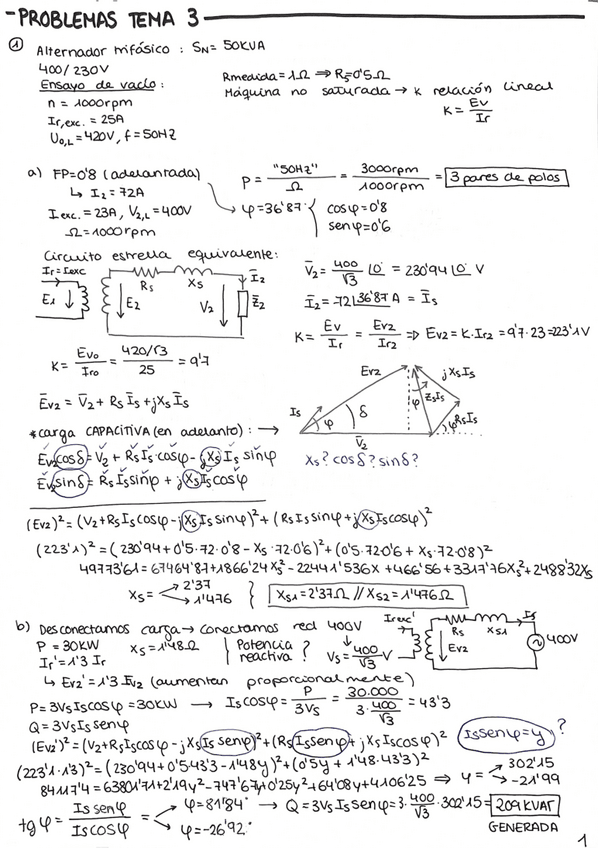 - PROBLEMAS TEMA 3
① Alternador trifásico : SN = 50KVA
400/230V
Ensayo de vacío:
n = 1000rpm
Ir,exc. = 25A
U0,L = 420V, f = 50HZ
Rmedida = 1Ω ⇒ Rs = 0'5Ω
Máquina no saturada → K relación lineal
K = Ev/Ir
a) FP = 0'8 (adelantada)
↳ I2 = 72A
I exc. = 23A, V2,L = 400V
Ω = 1000rpm
P = "50HZ"/Ω = 3000rpm/1000rpm = 3 pares de polos
φ = 36'87 { cosφ = 0'8
senφ = 0'6
Circuito estrella equivalente:
Ir = Iexc
E1 ↓ E2 Rs Xs V2 I̅2 Z̅2
V̅2 = 400/√3 |0° = 230'94 |0° V
I̅2 = 72 |36'87 A = I̅s
K = Ev/Ir = Ev2/Ir2 ⇒ Ev2 = K·Ir2 = 9'7·23 = 223'1V
K = Ev0/Ir0 = 420/√3/25 = 9'7
E̅v2 = V̅2 + Rs I̅s + jXs I̅s
Is φ Ev2 δ V̅2 φ ZsIs jXsIs φ RsIs
*carga CAPACITIVA (en adelanto) : →
Ev2 cosδ = V2 + RsIs·cosφ - jXs Is senφ
Ev2 senδ = RsIs senφ + jXs Is cosφ
Xs? cosδ? sinδ?
(Ev2)² = (V2 + RsIscosφ - jXsIs senφ)² + (RsIssenφ + jXsIscosφ)²
(223'1)² = (230'94 + 0'5·72·0'8 - Xs·72·0'6)² + (0'5·72·0'6 + Xs·72·0'8)²
49773'61 = 67464'87 + 1866'24 Xs² - 22441'536X + 466'56 + 3317'76Xs² + 2488'32Xs
Xs = → 2'37
→ 1'476
} Xs1 = 2'37Ω // Xs2 = 1'476Ω
b) Desconectamos carga → conectamos red 400V
P = 30KW Xs = 1'48Ω | Potencia reactiva ?
Ir' = 1'3 Ir
Vs = 400/√3 V
Irexc' Ev2 Rs Xs1 Is 400V
↳ Ev2' = 1'3 Ev2 (aumentan proporcionalmente)
P = 3VsIscosφ = 30KW → Iscosφ = P/3Vs = 30.000/3·400/√3 = 43'3
Q = 3VsIs senφ
(Ev2')² = (V2 + RsIscosφ - jXs Is senφ)² + (Rs Issenφ + jXsIscosφ)² Issenφ = y ?
(223'1·1'3)² = (230'94 + 0'5·43'3 - 1'48y)² + (0'5y + 1'48·43'3)²
84117'4 = 63801'71 + 2'19y² - 747'67y + 0'25y² + 64'08y + 4106'25 ⇒ y = → 302'15
→ -21'99
tgφ = Is senφ/Is cosφ = → φ = 81'84° → Q = 3VsIs senφ = 3·400/√3·302'15 = 209KVAr
→ φ = -26'92°
GENERADA
1